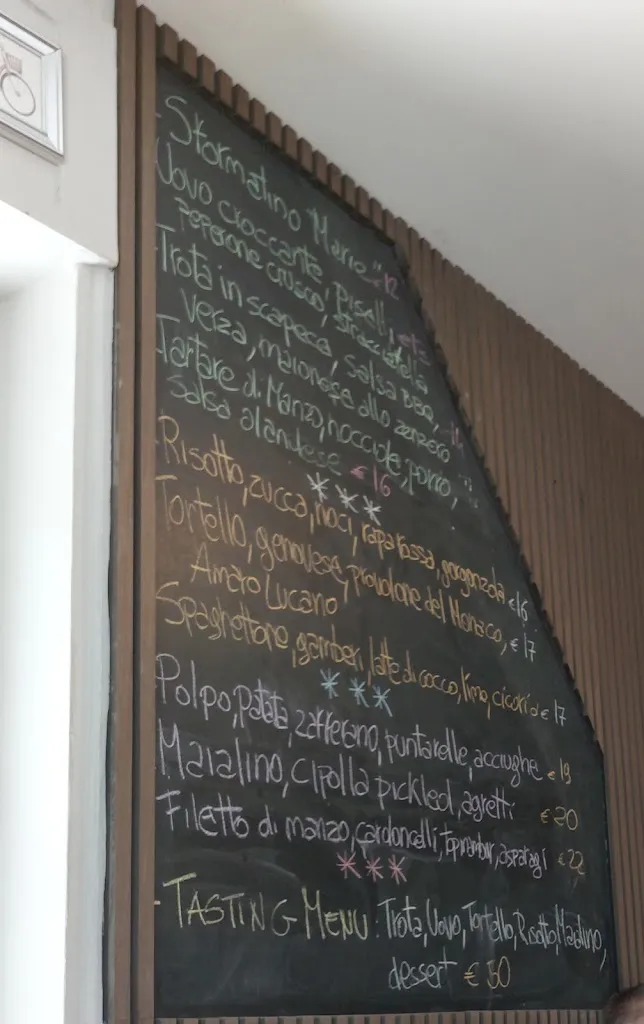 - Sformatino "Mario" 12
Uovo croccante, piselli, €15
peperone crusco, stracciatella
Trota in scapece, salsa BBQ, 14
verza, maionese allo zenzero
Tartare di Manzo, nocciole, porro,
salsa olandese €16
***
Risotto, zucca, noci, rapa rossa, gorgonzola €16
Tortello, genovese, provolone del Monaco, €17
Amaro Lucano
Spaghettone, gamberi, latte di cocco, lime, cicoria €17
***
Polpo, patata, zafferano, puntarelle, acciughe €19
Maialino, cipolla pickled, agretti €20
Filetto di manzo, cardoncelli, topinambur, asparagi €22
***
- TASTING MENU: Trota, Uovo, Tortello, Risotto, Maialino,
dessert €50